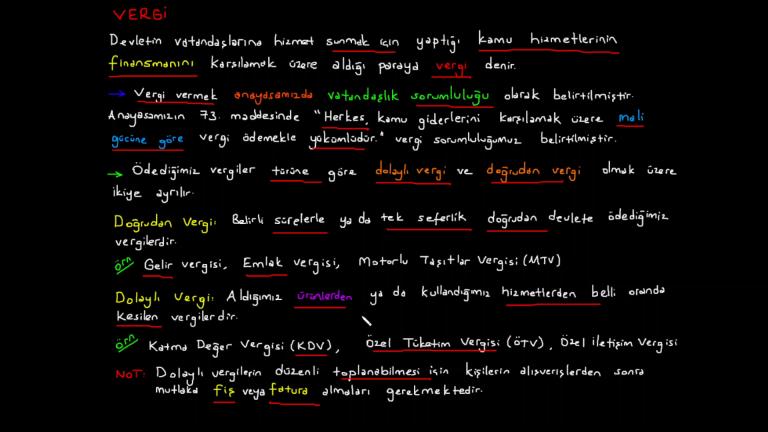 VERGİ
Devletin vatandaşlarına hizmet sunmak için yaptığı kamu hizmetlerinin
finansmanını karşılamak üzere aldığı paraya vergi denir.
→ Vergi vermek anayasamızda vatandaşlık sorumluluğu olarak belirtilmiştir.
Anayasamızın 73. maddesinde "Herkes, kamu giderlerini karşılamak üzere mali
gücüne göre vergi ödemekle yükümlüdür." vergi sorumluluğumuz belirtilmiştir.
→ Ödediğimiz vergiler türüne göre dolaylı vergi ve doğrudan vergi olmak üzere
ikiye ayrılır.
Doğrudan Vergi: Belirli sürelerle ya da tek seferlik doğrudan devlete ödediğimiz
vergilerdir.
örn Gelir vergisi, Emlak vergisi, Motorlu Taşıtlar Vergisi (MTV)
Dolaylı Vergi: Aldığımız ürünlerden ya da kullandığımız hizmetlerden belli oranda
kesilen vergilerdir.
örn Katma Değer Vergisi (KDV), Özel Tüketim Vergisi (ÖTV), Özel İletişim Vergisi
NOT: Dolaylı vergilerin düzenli toplanabilmesi için kişilerin alışverişlerden sonra
mutlaka fiş veya fatura almaları gerekmektedir.